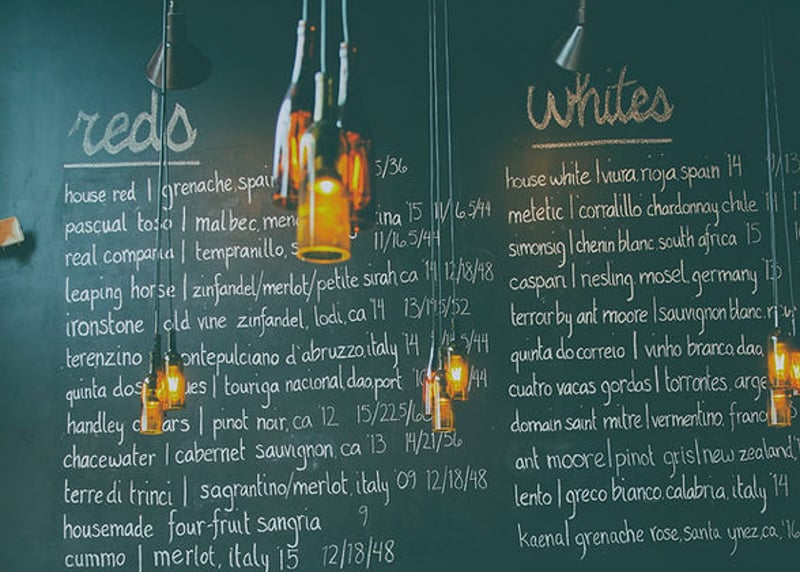 reds
house red | grenache, spain 5/36
pascual toso | malbec, '15 11/16.5/44
real compania | tempranillo, 11/16.5/44
leaping horse | zinfandel/merlot/petite sirah ca '14 12/18/48
ironstone old vine zinfandel, lodi, ca '14 /52
terenzino d'abruzzo, italy '14 /44
quinta | touriga nacional dao, port /44
handley | pinot noir, ca '12 15/22.5/
chacewater | cabernet sauvignon, ca '13 14/21/56
terre di trinci | sagrantino/merlot, italy '09 12/18/48
housemade four-fruit sangria 9
cummo | merlot, italy '15 12/18/48
whites
house white | viura, rioja spain '14
metetic | corralillo chardonnay chile '14
simonsig | chenin blanc, south africa '15
caspari | riesling, mosel, germany
terroir by ant moore | sauvignon blanc,
quinta do correio | vinho branco, dao,
cuatro vacas gordas | torrontes,
domain saint mitre | vermentino,
ant moore | pinot gris | new zealand,
lento | greco bianco, calabria, italy '14
kaena | grenache rose, santa ynez, ca, '16